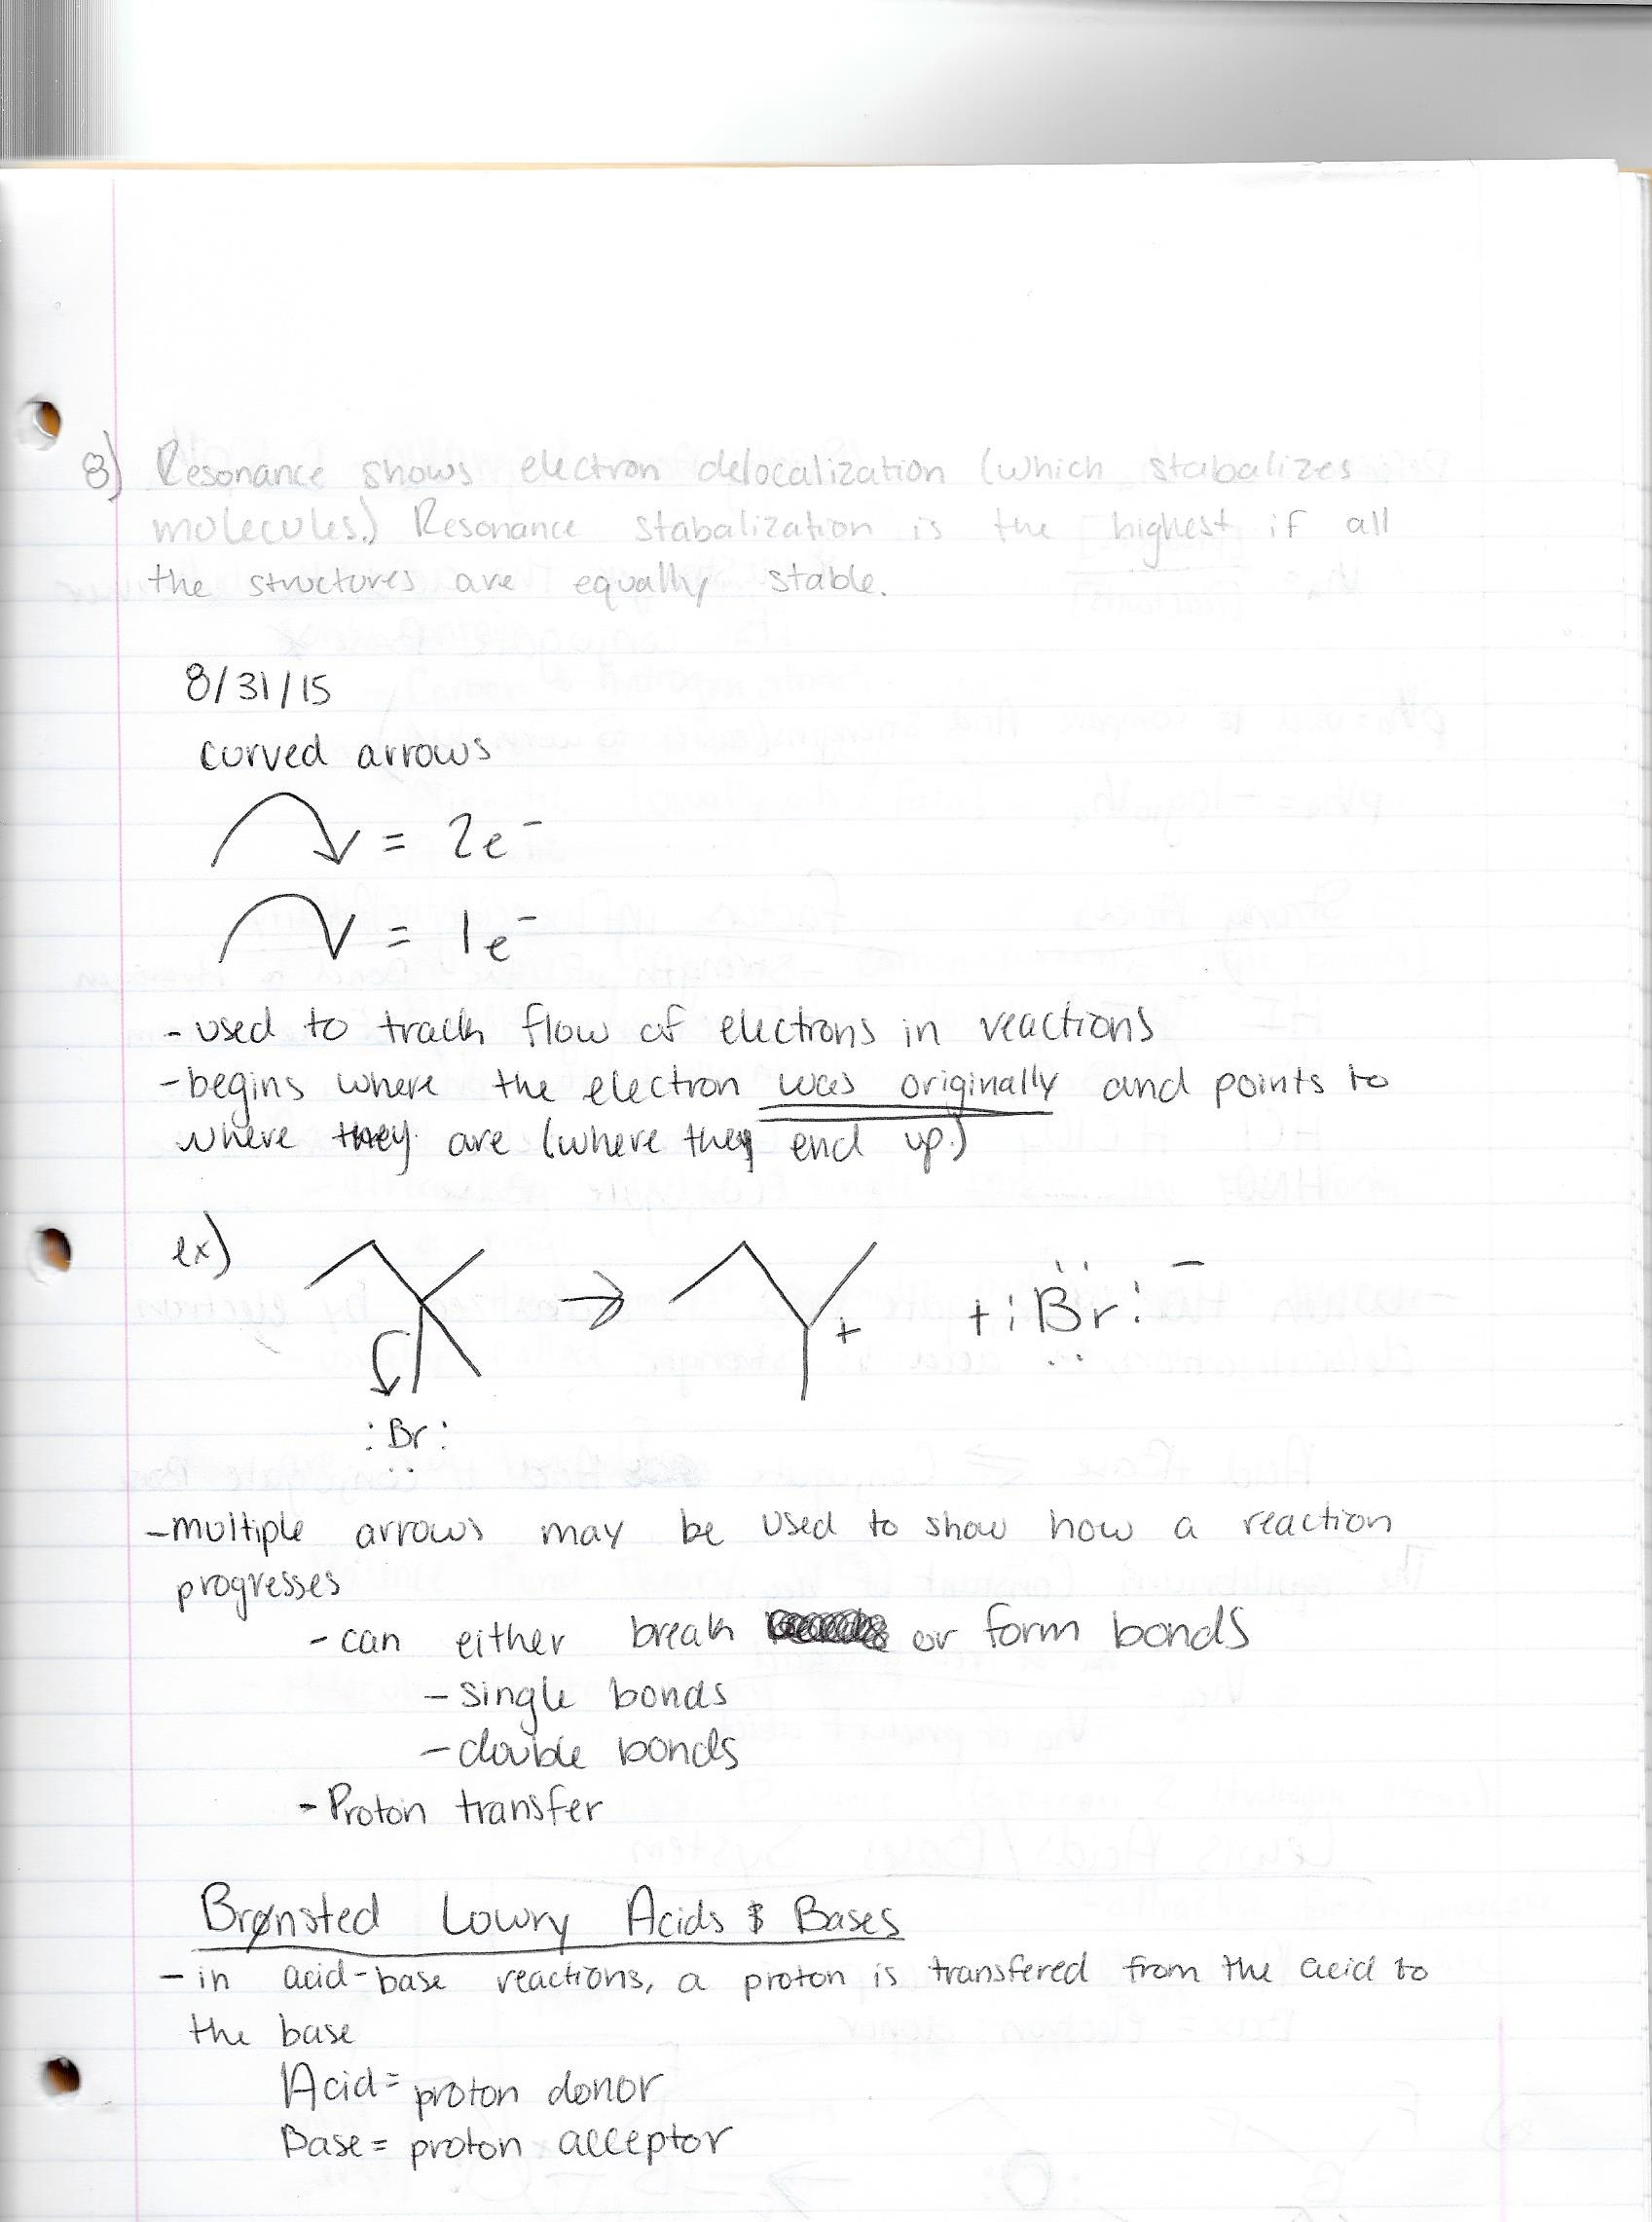 8) Resonance shows electron delocalization (which stabalizes
molecules.) Resonance stabalization is the highest if all
the structures are equally stable.
8/31/15
curved arrows
= 2e⁻
= 1e⁻
- used to track flow of electrons in reactions
- begins where the electron was originally and points to
where they are (where they end up.)
ex) → + + :Br: ⁻
:Br:
- multiple arrows may be used to show how a reaction
progresses
- can either break or form bonds
- single bonds
- double bonds
- Proton transfer
Brønsted Lowry Acids & Bases
- in acid-base reactions, a proton is transfered from the acid to
the base
Acid = proton donor
Base = proton acceptor